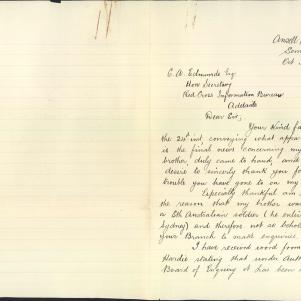 Ansell
Oct
C. A. Edmunds Esq
Hon Secretary
Red Cross Information Bureau
Adelaide
Dear Sir,
Your kind fa
the 24th inst conveying what appea
is the final news concerning my
brother duly came to hand, and
desire to sincerely thank you fo
trouble you have gone to on my
Especially thankful am
the reason that my brother was
a Sth Australian soldier (he enlis
Sydney) and therefore not so beho
your Branch to make enquiries
I have received word from
Hardie stating that under Auth
Board of Enquiry it has been